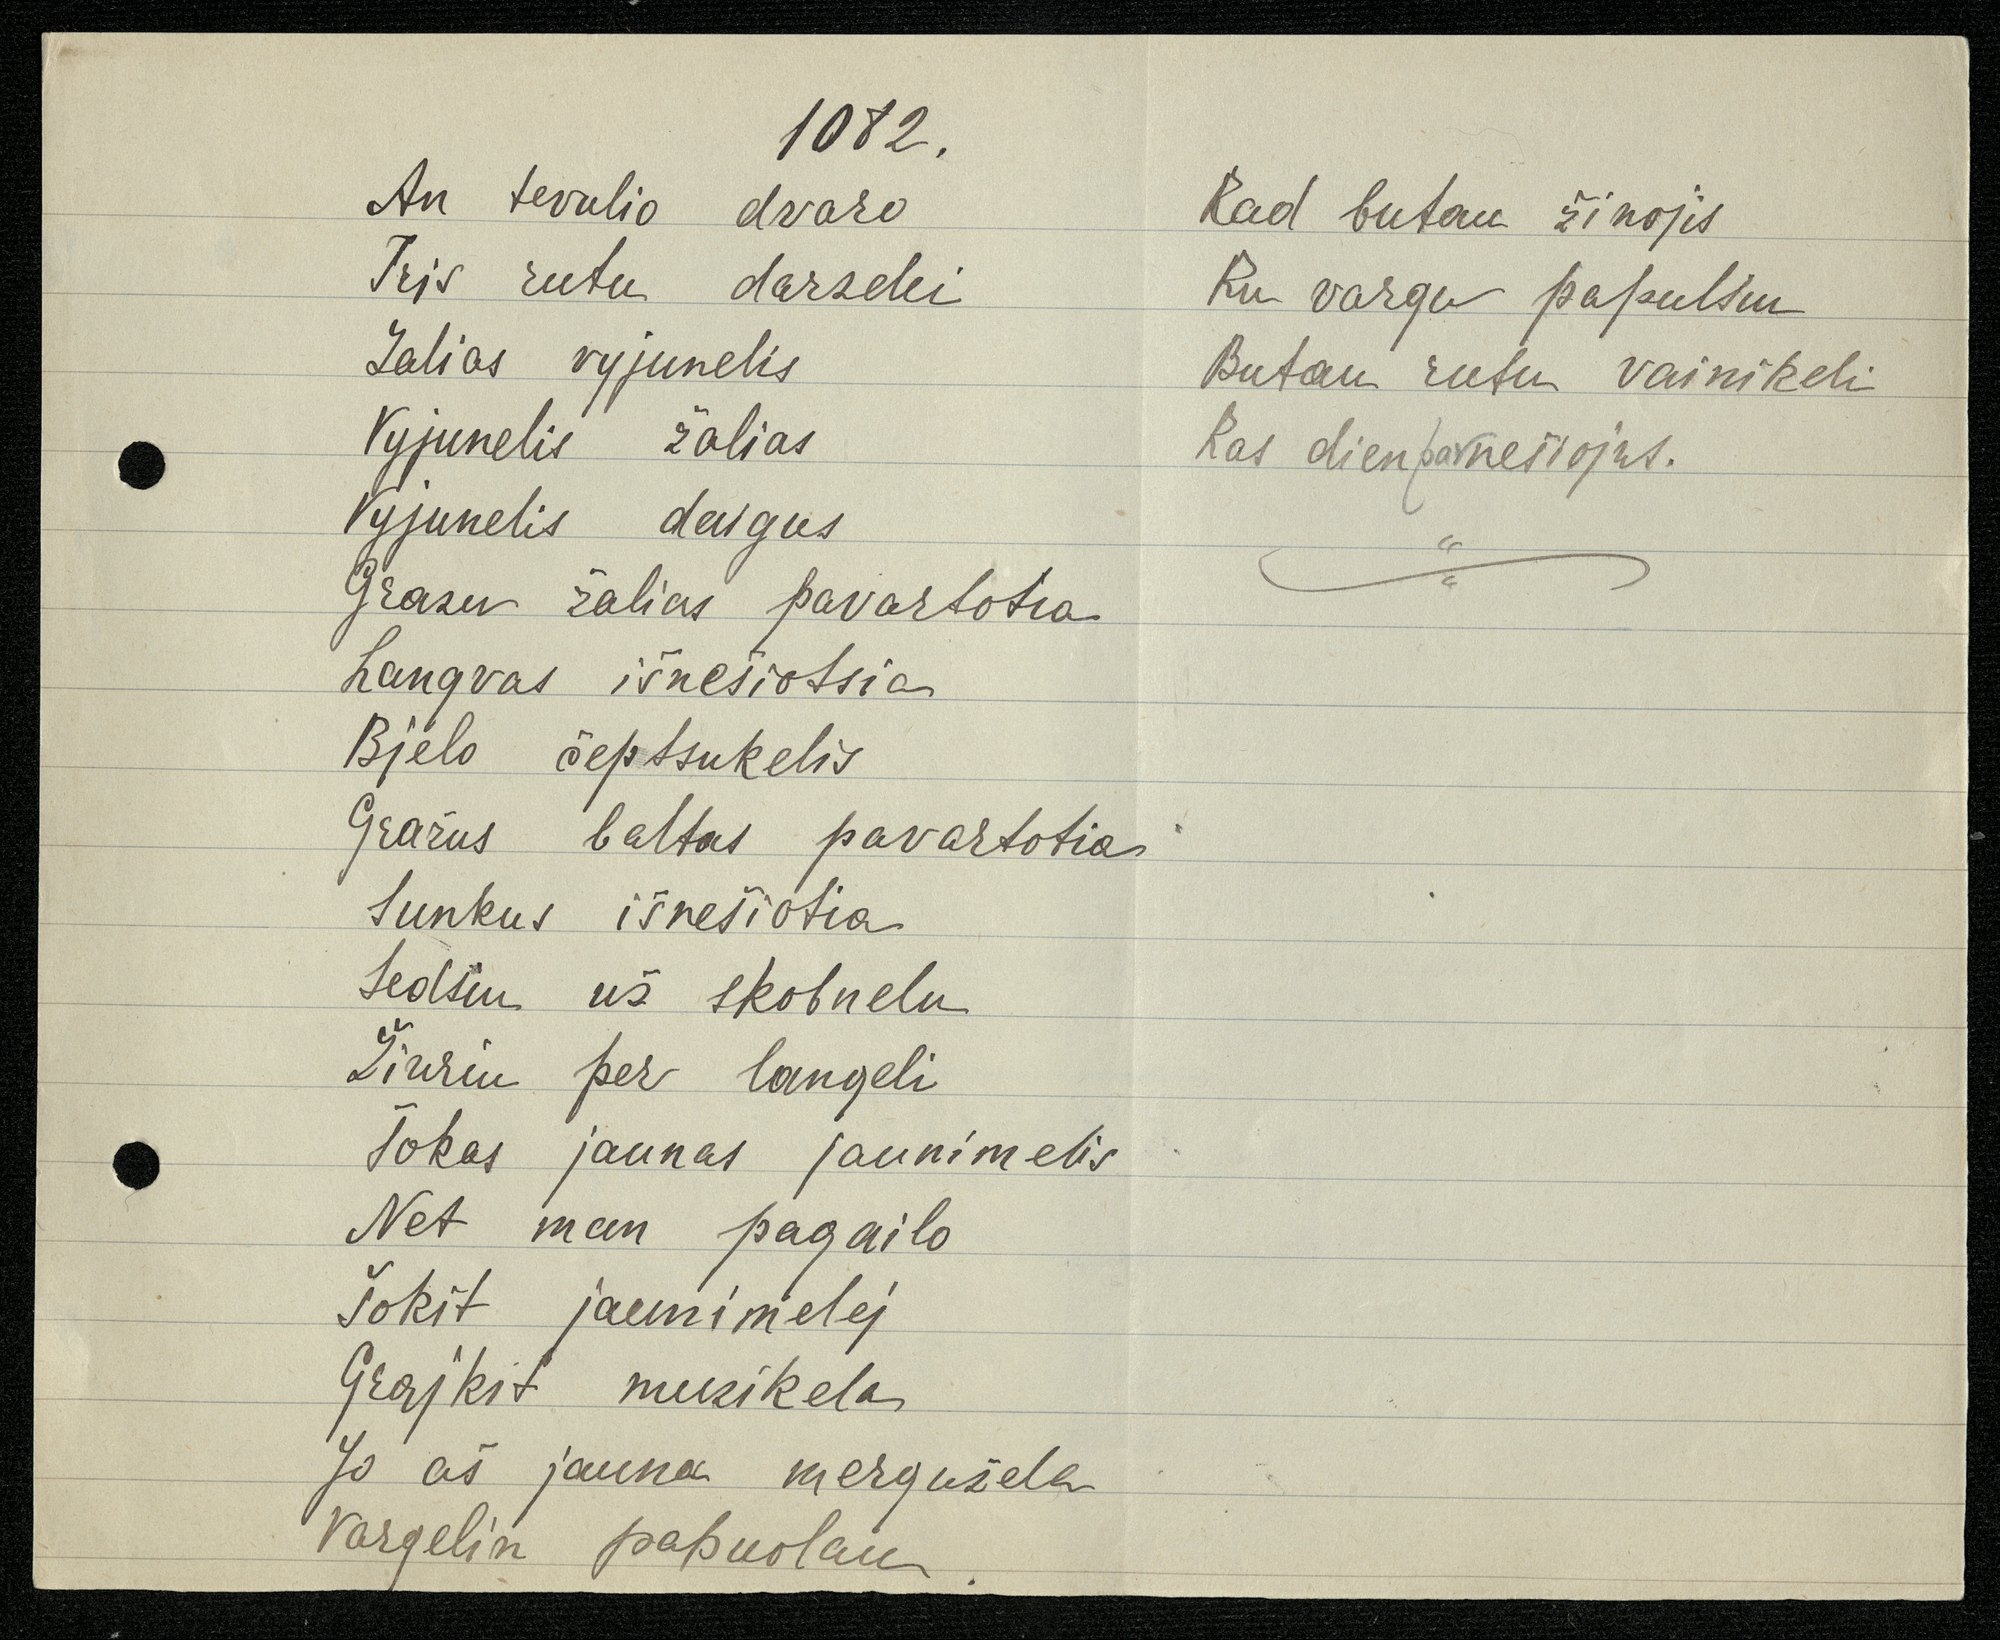 1082.
An tevulio dvaro
Tris rutu darzelei
Žalias vyjunelis
Vyjunelis žalias
Vyjunelis daigus
Grazu žalias pavartotia
Langvas išnešiotsia
Bjelo čeptsukelis
Gražus baltas pavartotia
Sunkus išnešiotia
Sedžiu už skobnelu
Žiuriu per langeli
Šokas jaunas jaunimelis
Net man pagailo
Šokit jaunimelej
Grajkit muzikela
Jo aš jauna mergužela
Vargelin papuolau.
Kad butau žinojis
Ku vargu papulsiu
Butau rutu vainikeli
Kas dien parnešiojus.